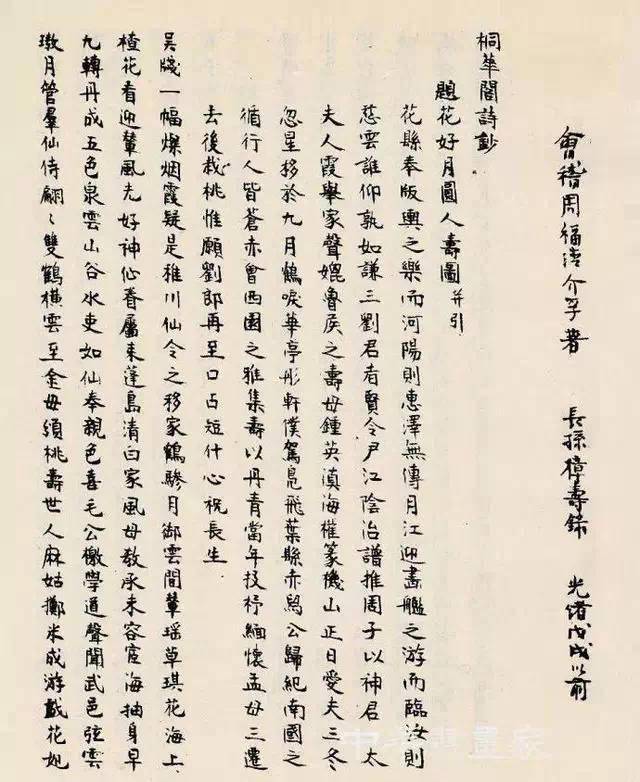 桐華閣詩鈔
會稽周福清介孚著 長孫樟壽錄 光緒戊戌以前
題花好月圓人壽圖 并引
花縣奉版輿之樂而河陽則惠澤無傳月江迎畫艦之游而臨汝則
慈雲誰仰孰如謙三劉君者賢令尹江陰治譜推周子以神君 太
夫人霞舉家聲媲魯侯之壽母鍾英滇海權篆機山正日愛夫三冬
忽星移於九月鶴唳華亭彤軒僕駕鳧飛葉縣赤舄公歸紀南國之
循行人皆蒼赤會西園之雅集壽以丹青當年投杼緬懷孟母三遷
去後栽桃惟願劉郎再至口占短什心祝長生
吳牋一幅爛烟霞疑是稚川仙令之移家鶴驂月御雲間輦瑶草琪花海上
楂花看迎輦風光好神仙眷屬來蓬島清白家風母教承未容宦海抽身早
九轉丹成五色泉雲山谷水吏如仙奉親色喜毛公檄學道聲聞武邑弦雲
璈月管羣仙侍翩〻雙鶴橫雲至金母頒桃壽世人麻姑擲米成游戲花妃